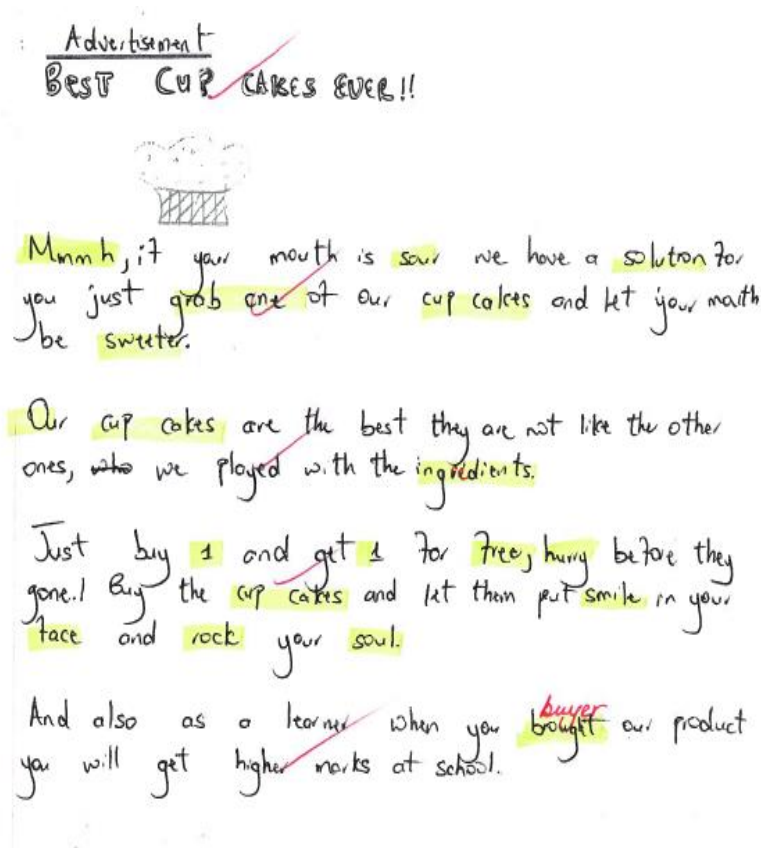 Advertisement
BEST CUP CAKES EVER!!
Mmmh, if your mouth is sour we have a solution for
you just grob one of our cup cakes and let your mouth
be sweeter.
Our cup cakes are the best they are not like the other
ones, who we played with the ingredients.
Just buy 1 and get 1 for free, hurry before they
gone.! Buy the cup cakes and let them put smile in your
face and rock your soul.
buyer
And also as a learner when you brought our product
you will get higher marks at school.